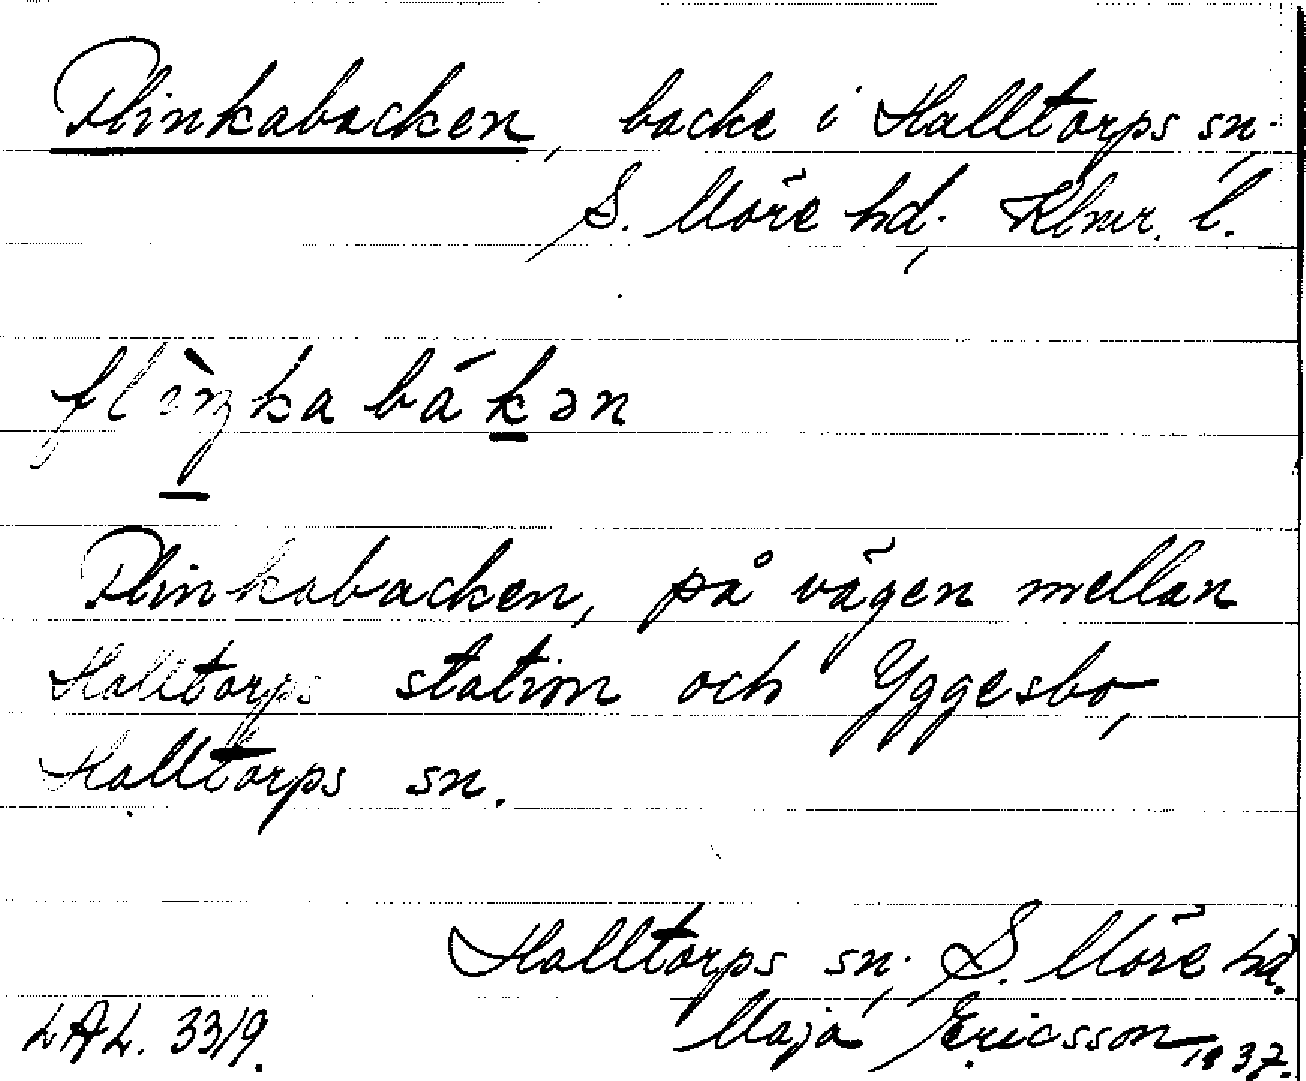 Flinkabacken, backe i Halltorps sn,
S. Möre hd, Klmr. l.
flìŋka bákən
Flinkabacken, på vägen mellan
Halltorps station och Yggesbo,
Halltorps sn.
Halltorps sn, S. Möre hd.
LAL. 3319. Maja Ericsson 1937.